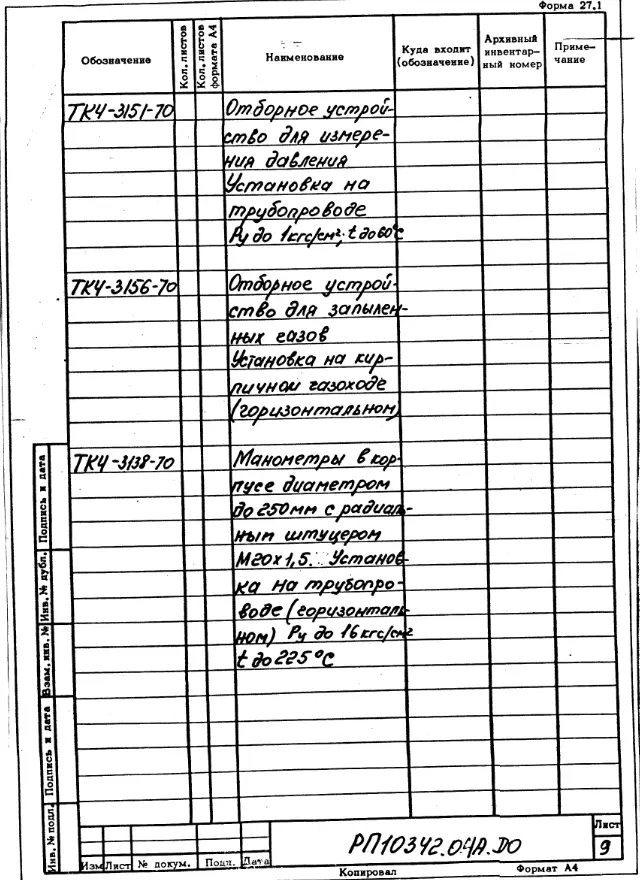 Форма 27.1
Обозначение
Кол. листов
Кол. листов формата А4
Наименование
Куда входит (обозначение)
Архивный инвентар- ный номер
Приме- чание
ТК4-3151-70 Отборное устрой-
ство для измере-
ния давления
Установка на
трубопроводе
Ру до 1кгс/см²; t до 60°С
ТК4-3156-70 Отборное устрой-
ство для запылен-
ных газов
Установка на кир-
пичном газоходе
(горизонтальном)
ТК4-3138-70 Манометры в кор-
пусе диаметром
до 250мм с радиаль-
ным штуцером
М20х1,5. Установ-
ка на трубопро-
воде (горизонталь-
ном) Ру до 16кгс/см²
t до 225°С
Подпись и дата
Инв. № дубл.
Взам. инв. №
Подпись и дата
Инв. № подл.
Изм Лист № докум. Подп. Дата
РП10342.04А.ДО
Лист
9
Копировал
Формат А4